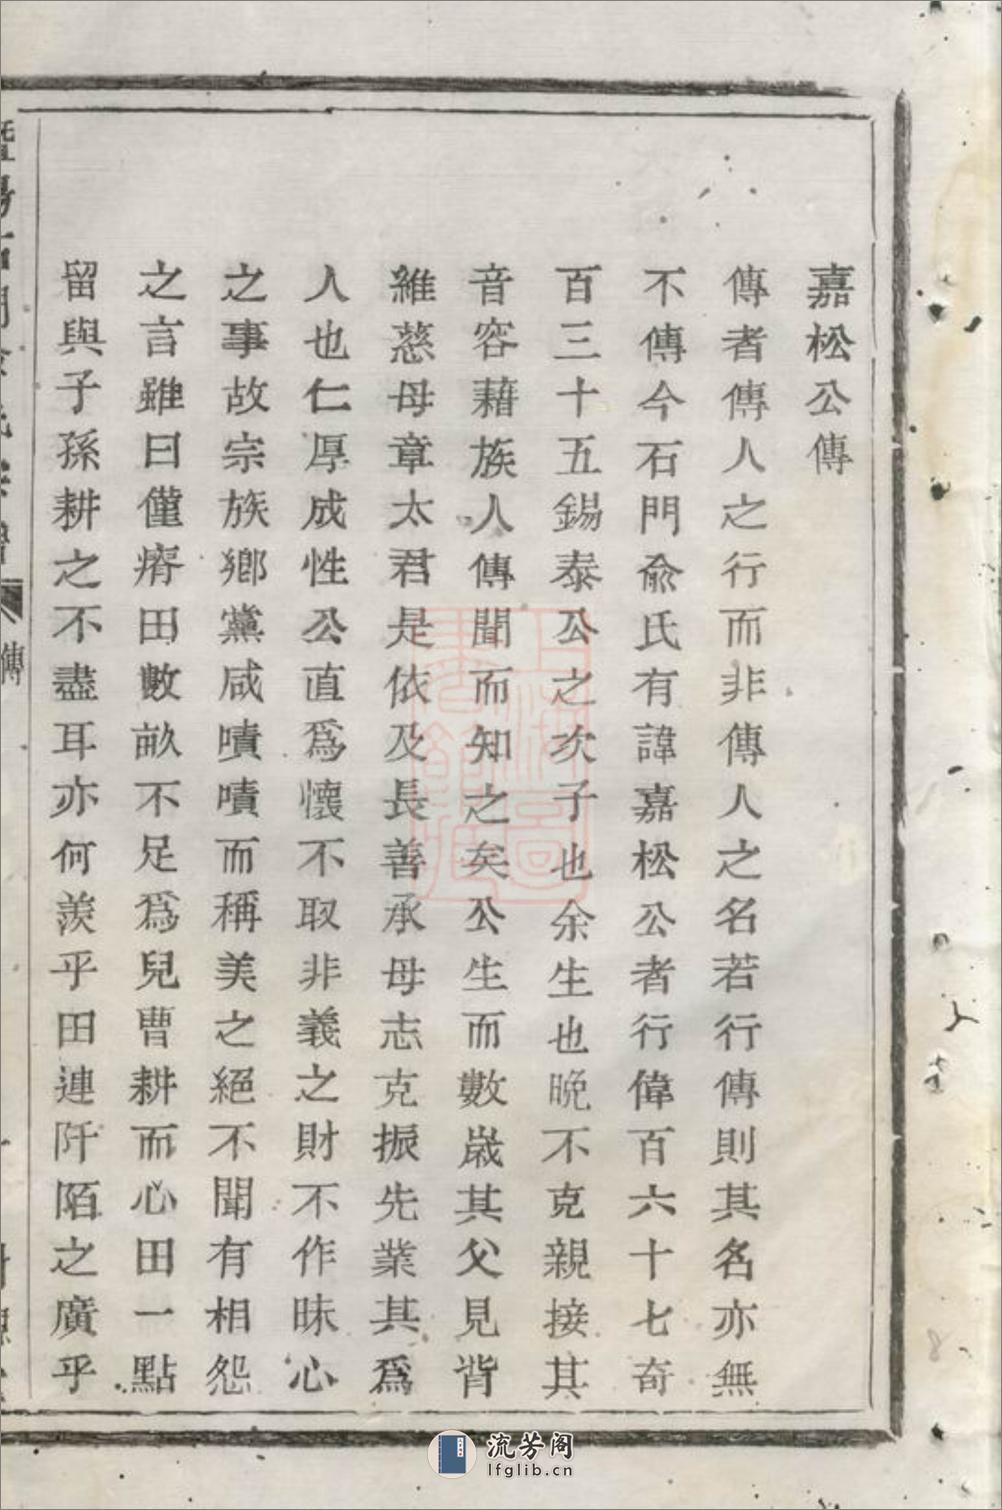 嘉松公傳
傳者傳人之行而非傳人之名若行傳則其名亦無
不傳今石門兪氏有諱嘉松公者行偉百六十七奇
百三十五錫泰公之次子也余生也晚不克親接其
音容藉族人傳聞而知之矣公生而數歲其父見背
維慈母章太君是依及長善承母志克振先業其爲
人也仁厚成性公直爲懷不取非義之財不作昧心
之事故宗族鄉黨咸嘖嘖而稱美之絕不聞有相怨
之言雖曰僅瘠田數畝不足爲兒曹耕而心田一點
留與子孫耕之不盡耳亦何羨乎田連阡陌之廣乎
傳
流芳阁
lfglib.cn